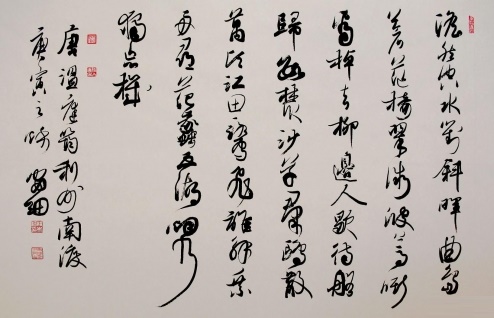 澹然空水對斜暉曲島
蒼茫接翠微波上馬嘶
看棹去柳邊人歇待船
歸數叢沙草群鷗散
萬頃江田一鷺飛誰解乘
舟尋范蠡五湖煙水
獨忘機
唐溫庭筠利州南渡
庚寅之秋